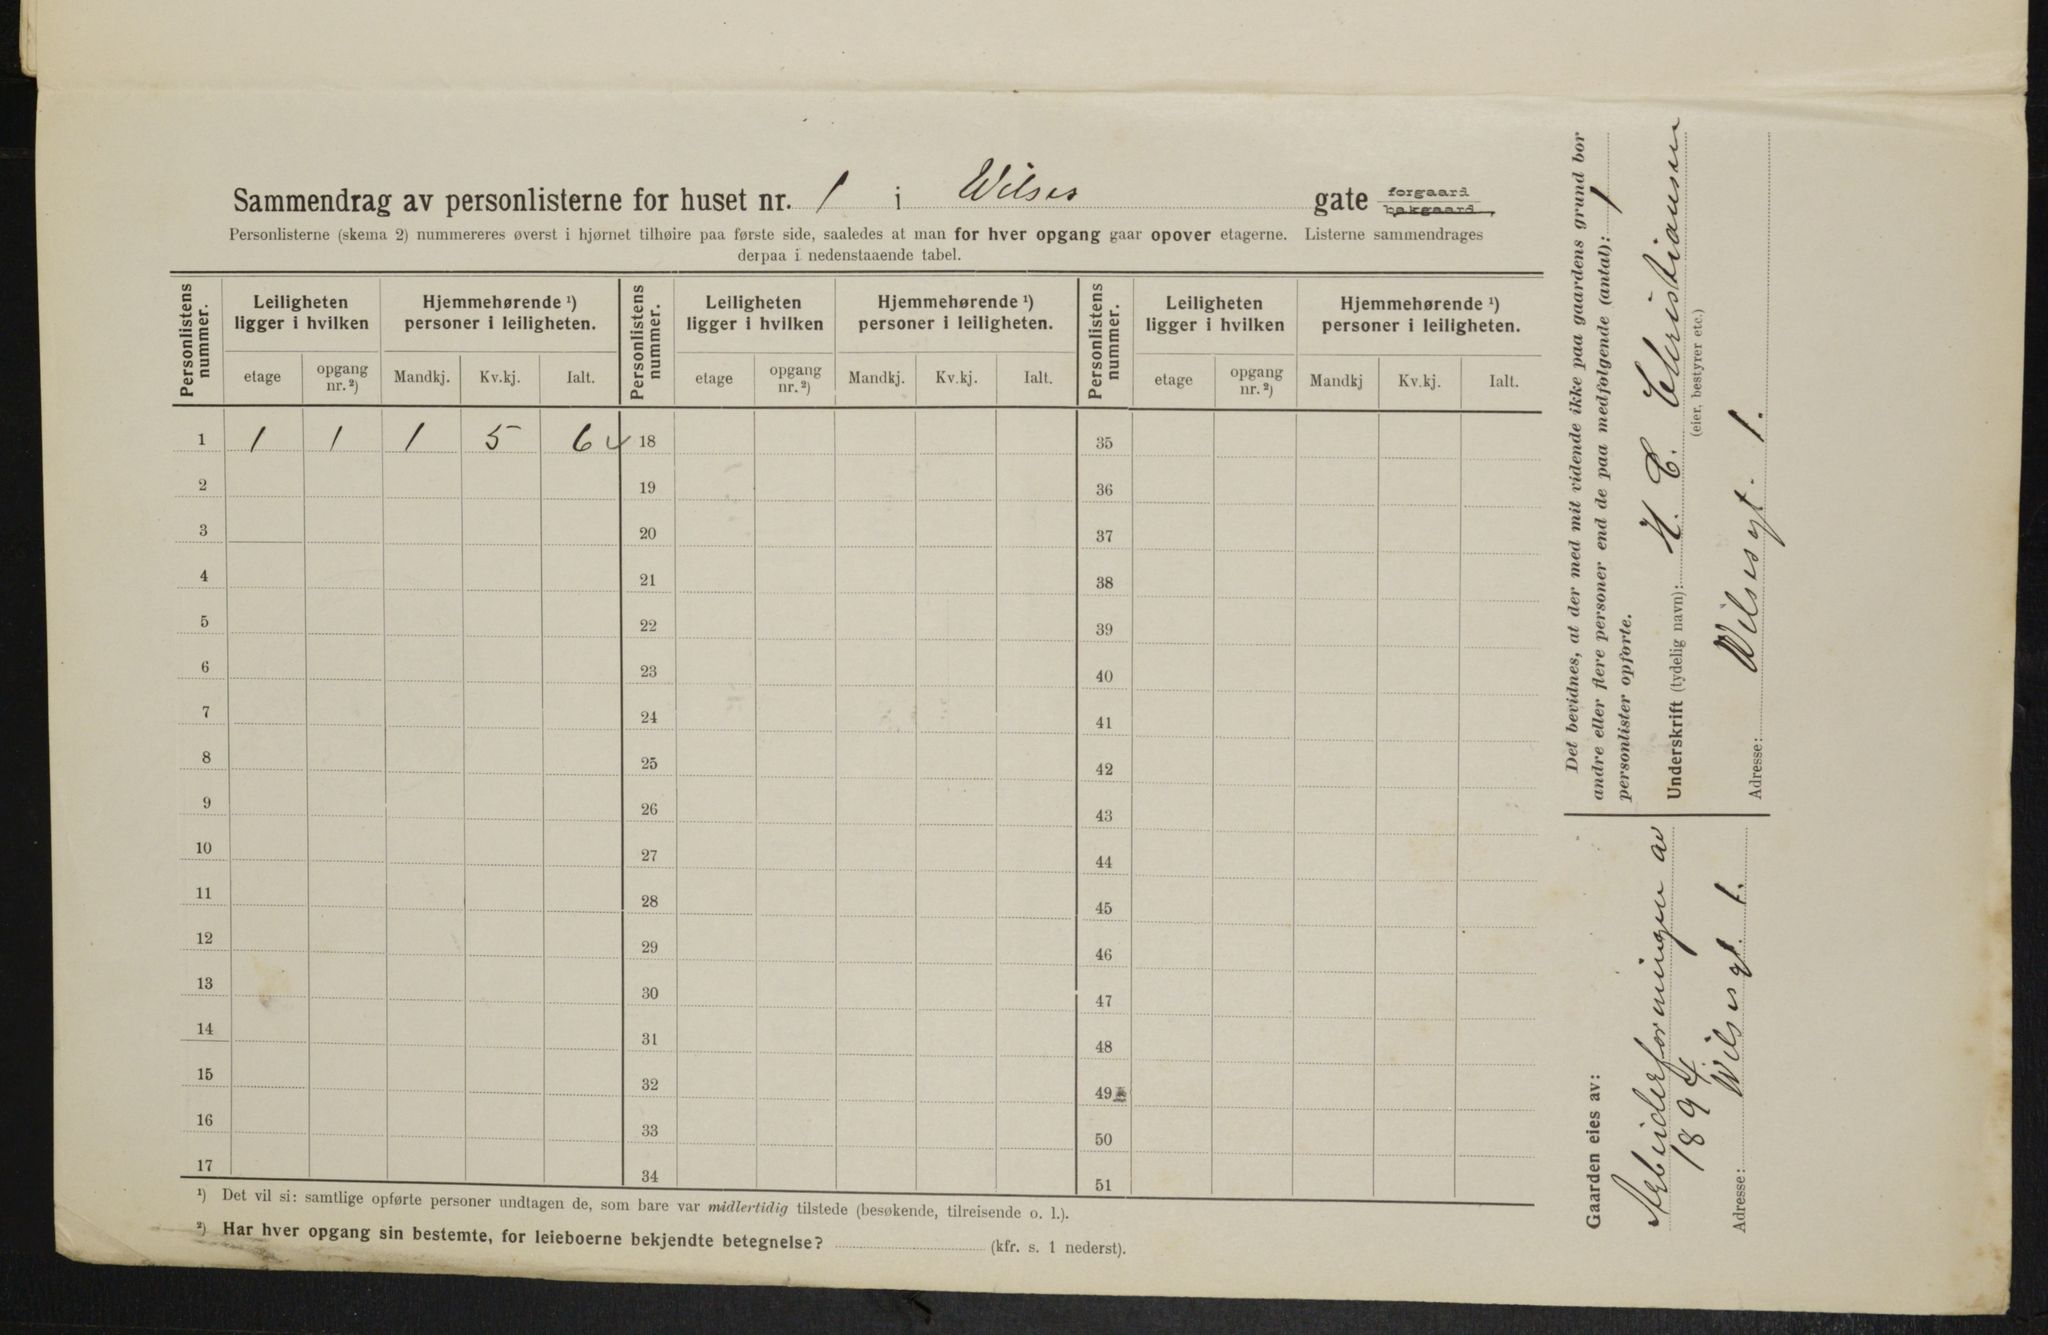 Sammendrag av personlisterne for huset nr. 1 i Wilses gate forgaard bakgaard
Personlisterne (skema 2) nummereres øverst i hjørnet tilhøire paa første side, saaledes at man for hver opgang gaar opover etagerne. Listerne sammendrages
derpaa i nedenstaaende tabel.
Personlistens nummer. Leiligheten ligger i hvilken Hjemmehørende ¹) personer i leiligheten. Personlistens nummer. Leiligheten ligger i hvilken Hjemmehørende ¹) personer i leiligheten. Personlistens nummer. Leiligheten ligger i hvilken Hjemmehørende ¹) personer i leiligheten.
etage opgang nr. ²) Mandkj. Kv.kj. Ialt. etage opgang nr. ²) Mandkj. Kv.kj. Ialt. etage opgang nr. ²) Mandkj Kv.kj. Ialt.
1 1 1 1 5 6 18 35
2 19 36
3 20 37
4 21 38
5 22 39
6 23 40
7 24 41
8 25 42
9 26 43
10 27 44
11 28 45
12 29 46
13 30 47
14 31 48
15 32 49
16 33 50
17 34 51
¹) Det vil si: samtlige opførte personer undtagen de, som bare var midlertidig tilstede (besøkende, tilreisende o. l.).
²) Har hver opgang sin bestemte, for leieboerne bekjendte betegnelse? (kfr. s. 1 nederst).
Det bevidnes, at der med mit vidende ikke paa gaardens grund bor
andre eller flere personer end de paa medfølgende (antal): 1
personlister opførte.
Underskrift (tydelig navn): H. C. Christiansen
(eier, bestyrer etc.)
Adresse: Wilsesgt. 1.
Gaarden eies av:
Arbeiderforningen av
1894
Adresse: Wilsesgt. 1.